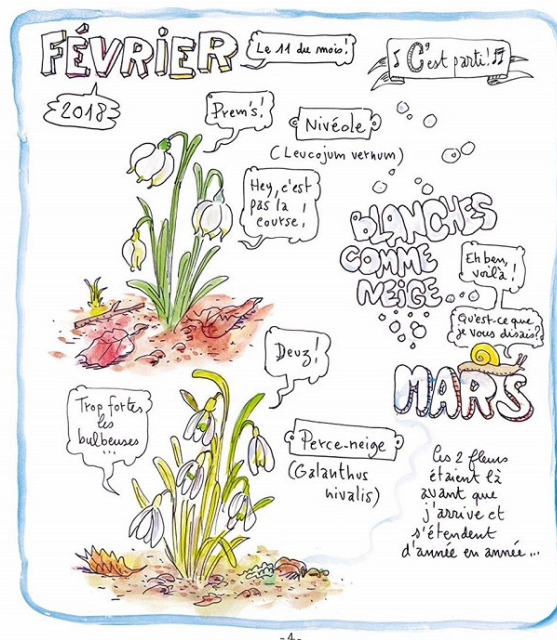 FÉVRIER
Le 11 du mois!
2018
C'est parti!
Prem's!
Nivéole
(Leucojum vernum)
Hey, c'est
pas la
course!
BLANCHES
COMME
NEIGE
Eh ben,
voilà!
Qu'est-ce que
je vous disais?
MARS
Deuz!
Trop fortes
les
bulbeuses
...
Perce-neige
(Galanthus
nivalis)
Les 2 fleurs
étaient là
avant que
j'arrive et
s'étendent
d'année en année...
-4-